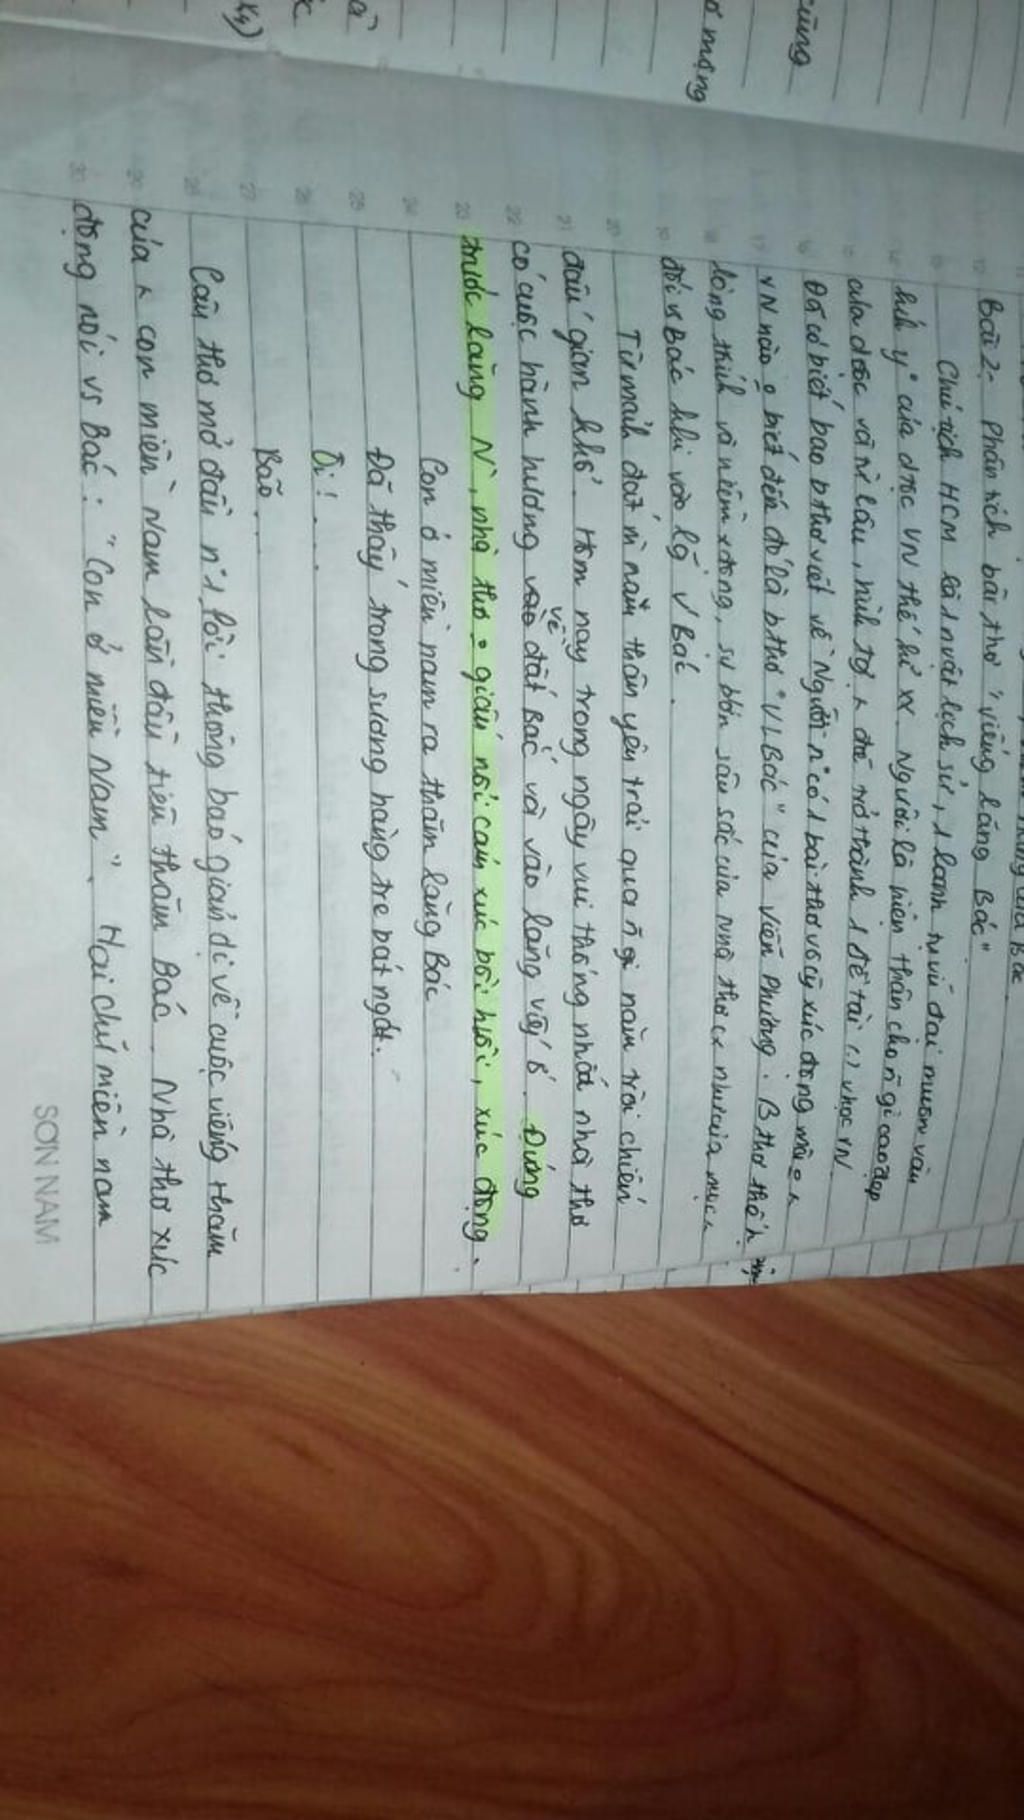 cũng
ơ mộng
à
Bài 2: Phân tích bài thơ "viếng lăng Bác"
Chủ tịch HCM là 1 nvật lịch sử, 1 lãnh tụ vĩ đại muôn vàn
kính y° của dtộc VN thế kỉ XX. Người là hiện thân cho n~ gì cao đẹp
của dtộc và từ lâu, hình tg đã trở thành 1 đề tài (.) vhọc VN
Đã có biết bao b thơ viết về Người n° có 1 bài thơ vô g xúc động mà
VN nào o biết đến đó là b thơ "VLBác" của Viễn Phương. B thơ thể h
lòng thành và niềm x động, sự bồn sâu sắc của nhà thơ cx như của mọi
đối vs Bác khi vào lg v Bác.
Từ mảnh đất m nam thân yêu trải qua n~ gi năm trời chiến
đấu gian khổ. Hôm nay trong ngày vui thống nhất nhà thơ
có cuộc hành hương về đất Bắc và vào lăng viếg B. Đứng
trước lăng N`, nhà thơ o giấu nổi cảm xúc bồi hồi, xúc động.
Con ở miền nam ra thăm lăng Bác
Đã thấy trong sương hàng tre bát ngát.
Ôi! . . .
Bão . . .
Câu thơ mở đầu n° 1 lời thông báo giản dị về cuộc viếng thăm
của con miền Nam lần đầu tiên thăm Bác. Nhà thơ xúc
động nói vs Bác: "Con ở miền Nam". Hai chữ miền nam
SƠN NAM